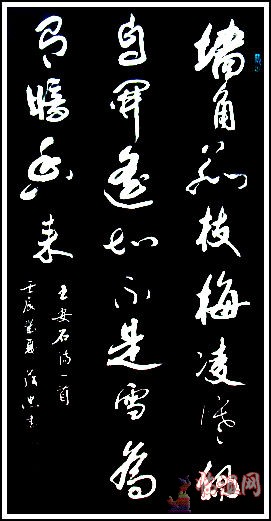 墙角数枝梅凌寒独
自開遥知不是雪為
有暗香来
王安石诗一首
壬辰夏